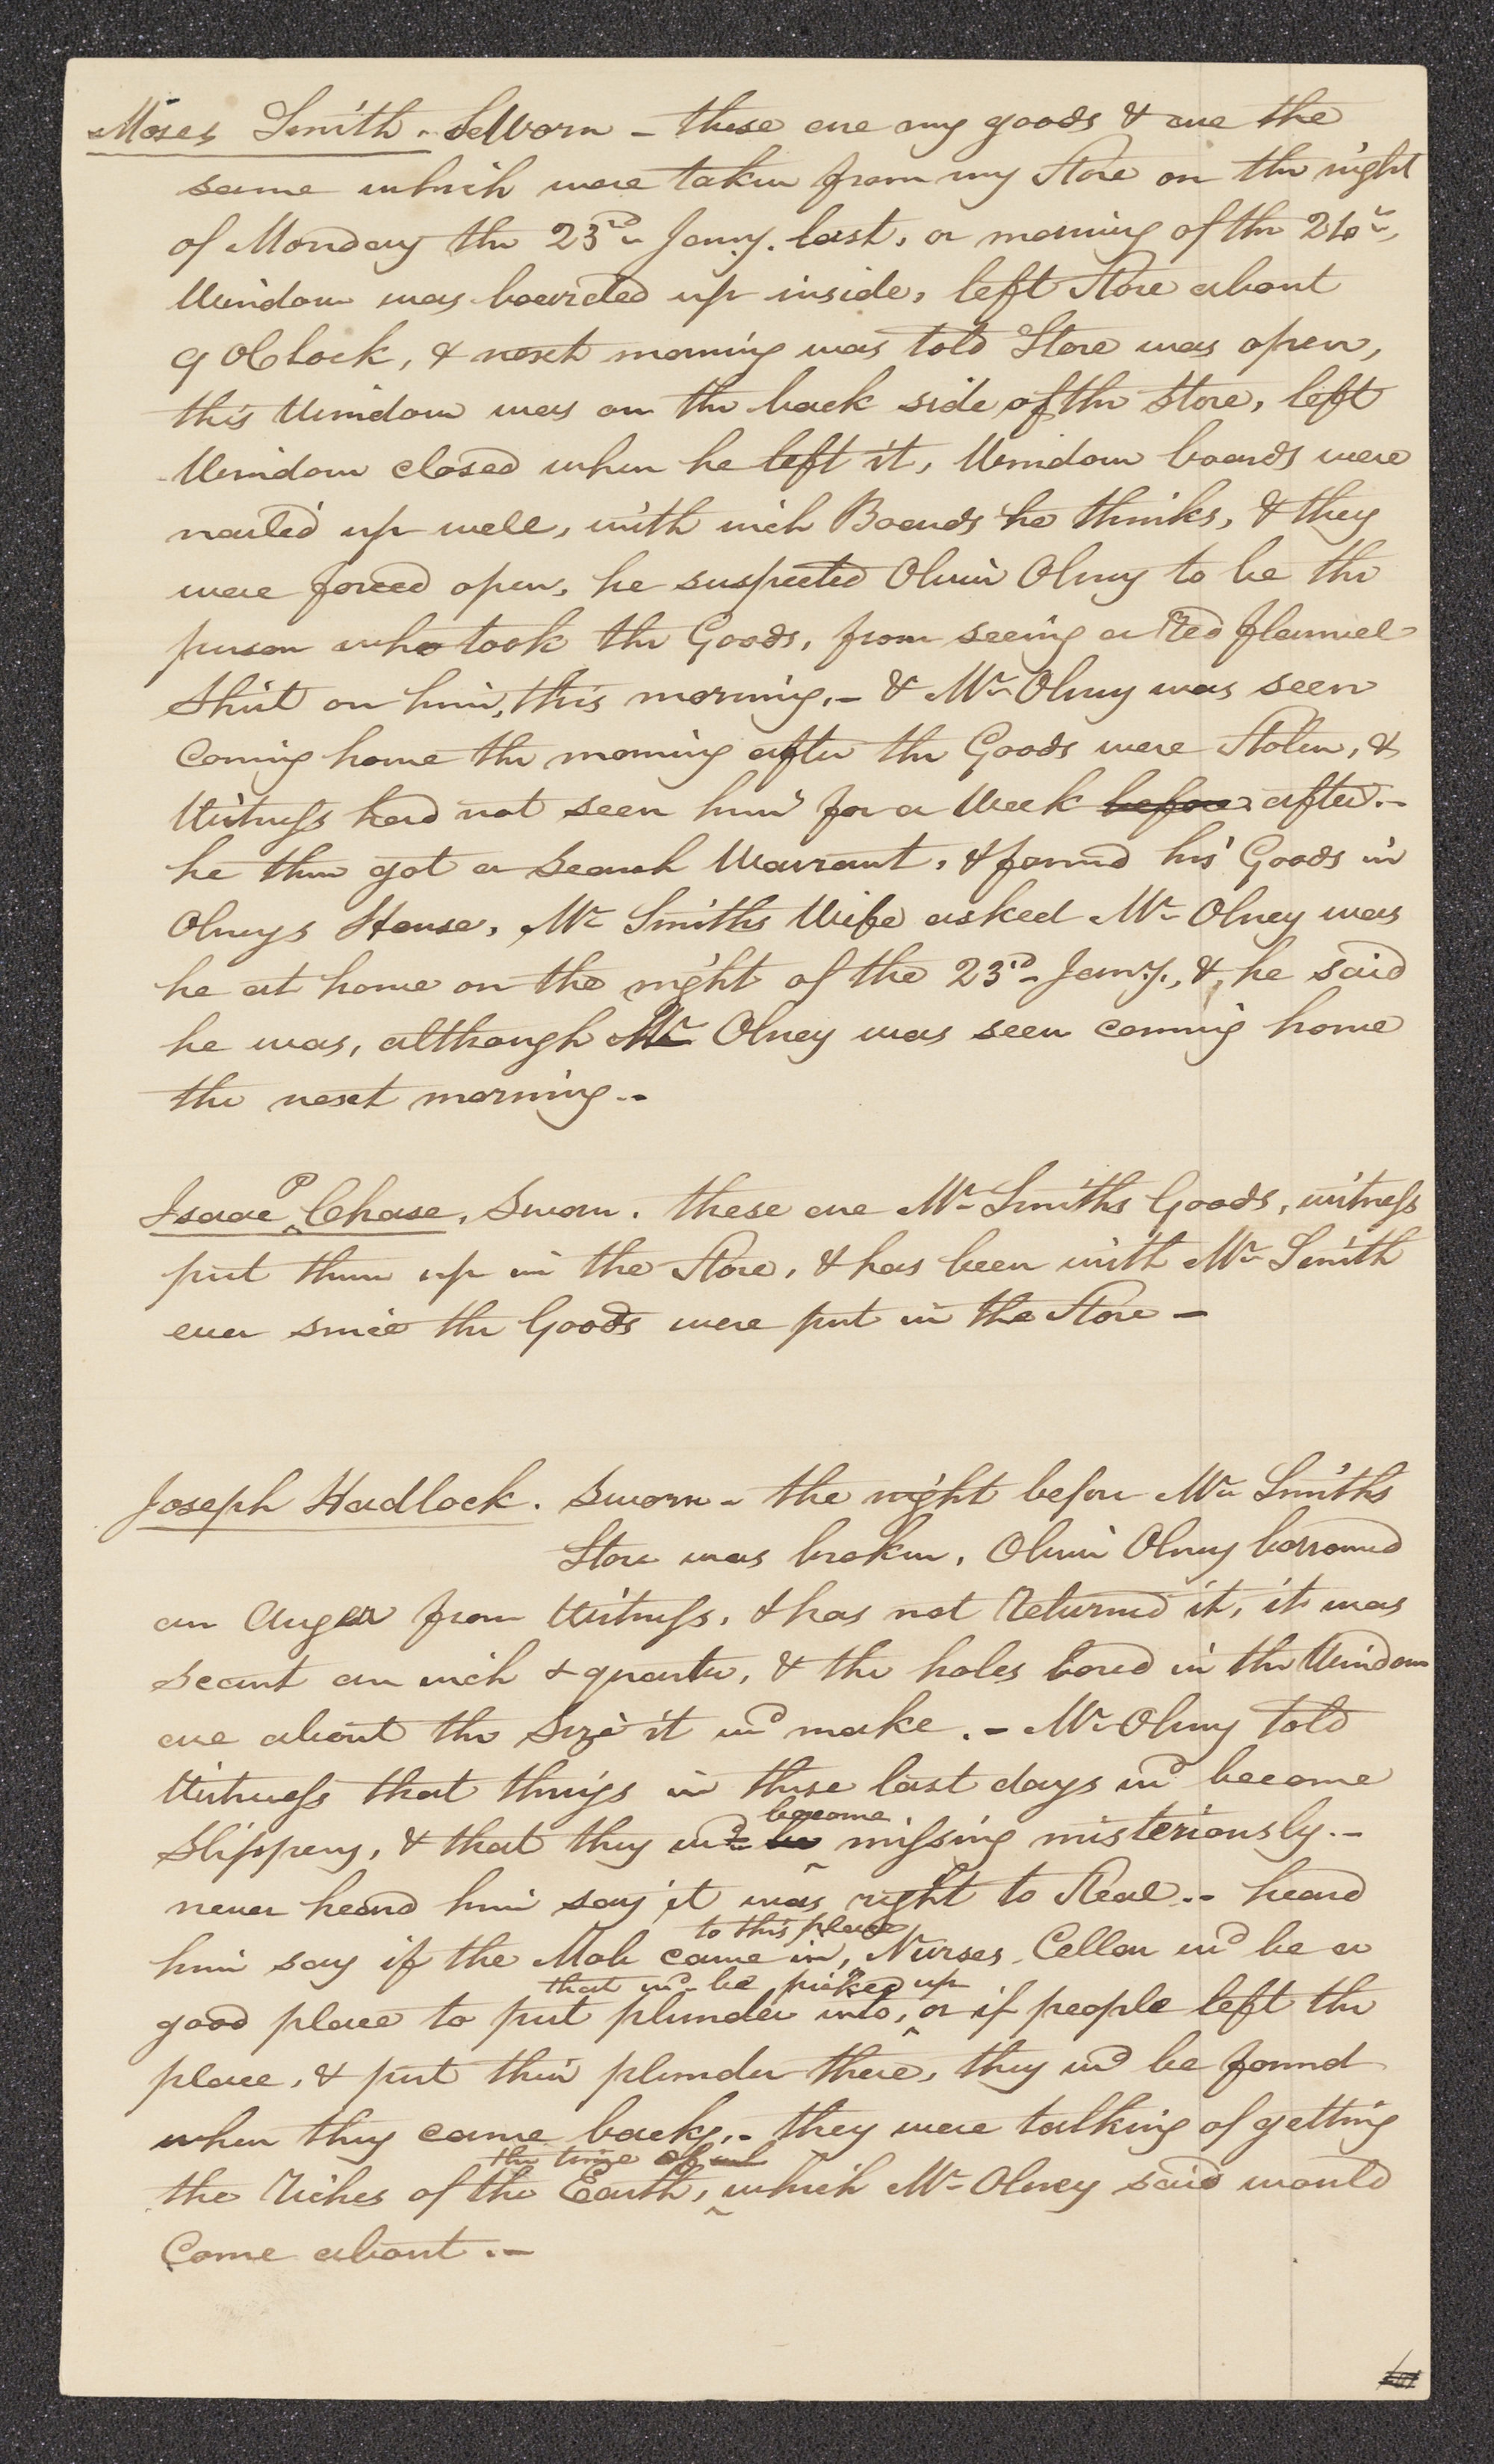 Moses Smith. Sworn – these are my goods & are the
same which were taken from my Store on the night
of Monday the 23rd Jany. last, or morning of the 24th,
Window was boarded up inside, left Store about
9 OClock, & next morning was told Store was open,
this Window was on the back side of the Store, left
Window closed when he left it, Window boards were
nailed up well, with inch Boards he thinks, & they
were forced open, he suspected Oliver Olney to be the
person who took the Goods, from seeing a Red flannel
Shirt on him, this morning.– & Mr Olney was seen
Coming home the morning after the Goods were Stolen, &
Witness had not seen him for a Week before after.–
he then got a Search Warrant, & found his Goods in
Olneys House, Mr Smiths Wife asked Mr Olney was
he at home on the night of the 23rd Jany., & he said
he was, although Mr Olney was seen coming home
the next morning..
Isaac P Chase, Sworn. these are Mr Smiths Goods, witness
put them up in the Store, & has been with Mr Smith
ever since the Goods were put in the Store –
Joseph Hadlock. Sworn – the night before Mr Smiths
Store was broken, Oliver Olney borrowed
an Auger from Witness, & has not Returned it, it was
scant an inch & quarter, & the holes bored in the Window
are about the Size it wd make.– Mr Olney told
Witness that things in these last days wd become
become
Slippery, & that they wd be missing misteriously.–
never heard him say it was right to Steal.. heard
to this place
him say if the Mob came in, Nurses Cellar wd be a
that wd be picked up
good place to put plunder into, or if people left the
place, & put their plunder there, they wd be found
when they came back,.. they were talking of getting
the time of
the Riches of the Earth, which Mr Olney said would
Come about.–